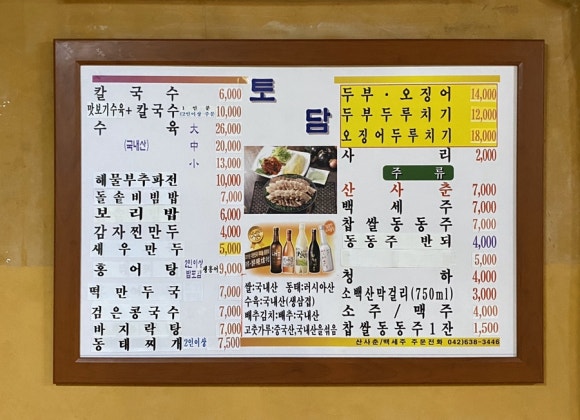 칼국수 6,000
맛보기수육+칼국수 1인분 (2인이상 주문) 10,000
수육 大 26,000
(국내산) 中 20,000
小 13,000
해물부추파전 10,000
돌솥비빔밥 7,000
보리밥 6,000
감자찐만두 4,000
새우만두 5,000
홍어탕 2인이상 생홍어 9,000
떡만두국 7,000
검은콩국수 7,000
바지락탕 7,000
동태찌개 2인이상 7,500
토담
쌀:국내산 동태:러시아산
수육:국내산(생삼겹)
배추김치:배추:국내산
고춧가루:중국산,국내산윤섞음
두부·오징어 14,000
두부두루치기 12,000
오징어두루치기 18,000
사리 2,000
주류
산사춘 7,000
백세주 7,000
찹쌀동동주 7,000
동동주 반되 4,000
5,000
청하 4,000
소백산막걸리(750ml) 3,000
소주/맥주 4,000
찹쌀동동주1잔 1,500
산사춘/백세주 주문전화 042)638-3446